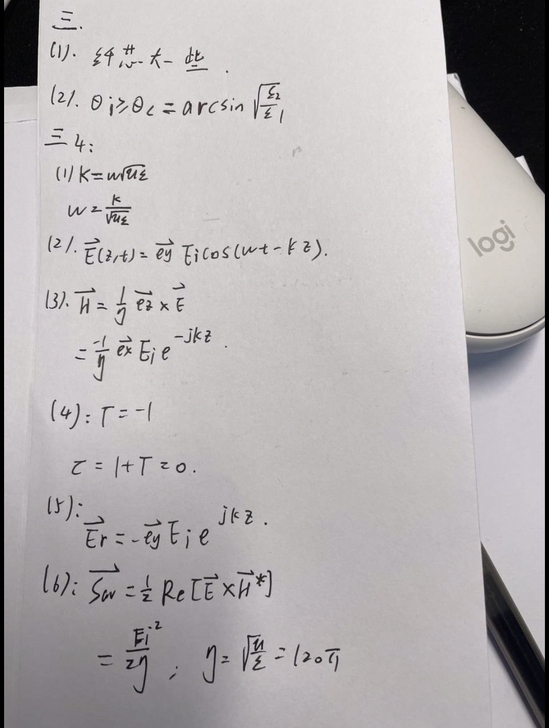 三.
(1). 纤芯大一些.
(2). θi≥θc=arcsin√(ε2/ε1)
三4:
(1) K=w√με
w=k/√με
(2). E⃗(z,t)=e⃗y Ei cos(wt-kz).
(3). H⃗=1/η e⃗z×E⃗
=-1/η e⃗x Ei e^-jkz.
(4): T=-1
τ=1+T=0.
(5):
E⃗r=-e⃗y Ei e^jkz.
(6): S⃗av=1/2 Re[E⃗×H⃗*]
=Ei²/2η; η=√(μ/ε)=120π
logi